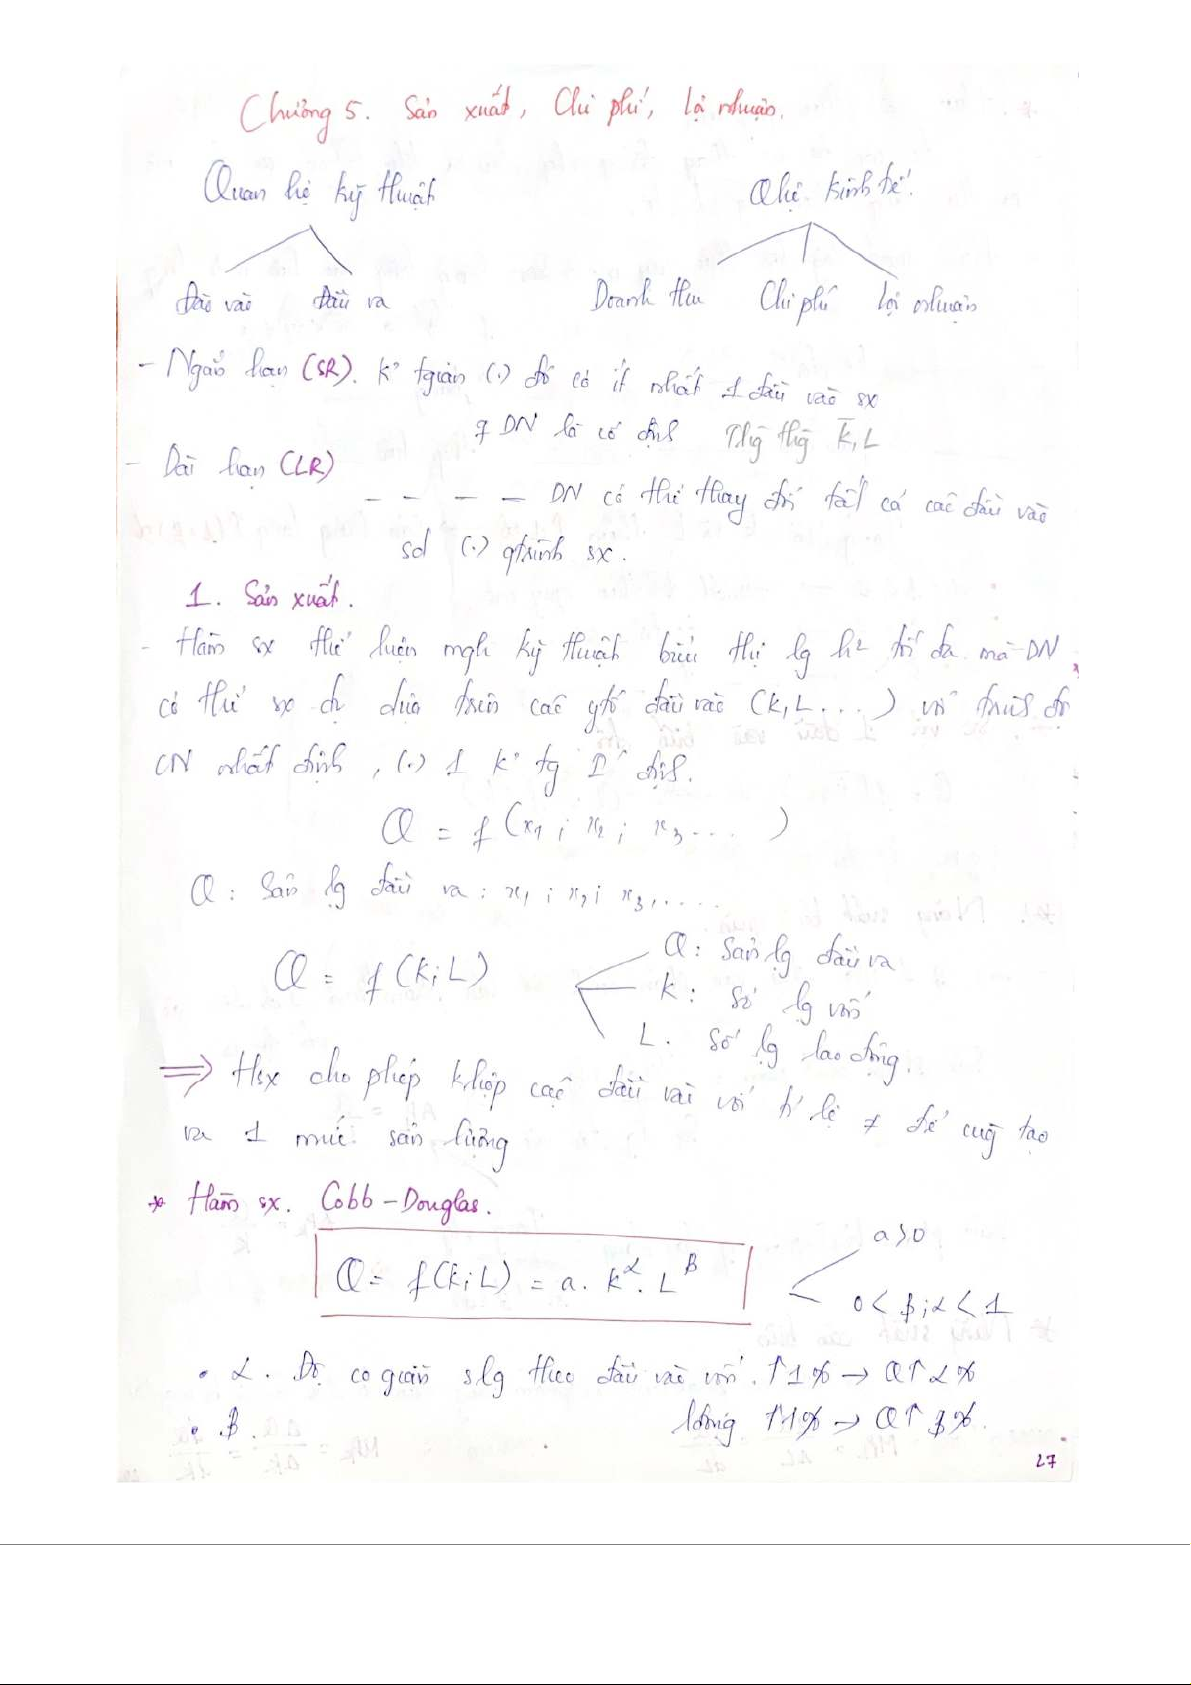 Chương 5. Sản xuất, Chi phí, lợi nhuận.
Quan hệ kỹ thuật
Qhệ kinh tế
Đầu vào
Đầu ra
Doanh thu
Chi phí
lợi nhuận
- Ngắn hạn (SR). k° tgian (.) đó có ít nhất 1 đầu vào sx
của DN là cố định Thg thg K̄, L
- Dài hạn (LR)
_ _ _ _ DN có thể thay đổi tất cả các đầu vào
sd (.) qtrình sx.
1. Sản xuất.
- Hàm sx thể hiện mqh kỹ thuật biểu thị lg h² tối đa mà DN
có thể sx đc dựa trên các ytố đầu vào (K, L...) với trình độ
CN nhất định, (.) 1 k° tg I° định.
Q = f(x1; x2; x3... )
Q: Sản lg đầu ra: x1; x2; x3,.....
Q = f(K; L)
Q: Sản lg đầu ra
K: Số lg vốn
L. Số lg lao động.
=> Hsx cho phép k hợp các đầu vào với tỉ lệ ≠ để cùng tạo
ra 1 mức sản lượng
* Hàm sx. Cobb - Douglas.
Q = f(K; L) = a. K^α. L^β
a > 0
0 < β; α < 1
• α. Độ co giãn slg theo đầu vào vốn. ↑1% → Q↑ α%
• β lđộng ↑1% → Q↑ β%.
27